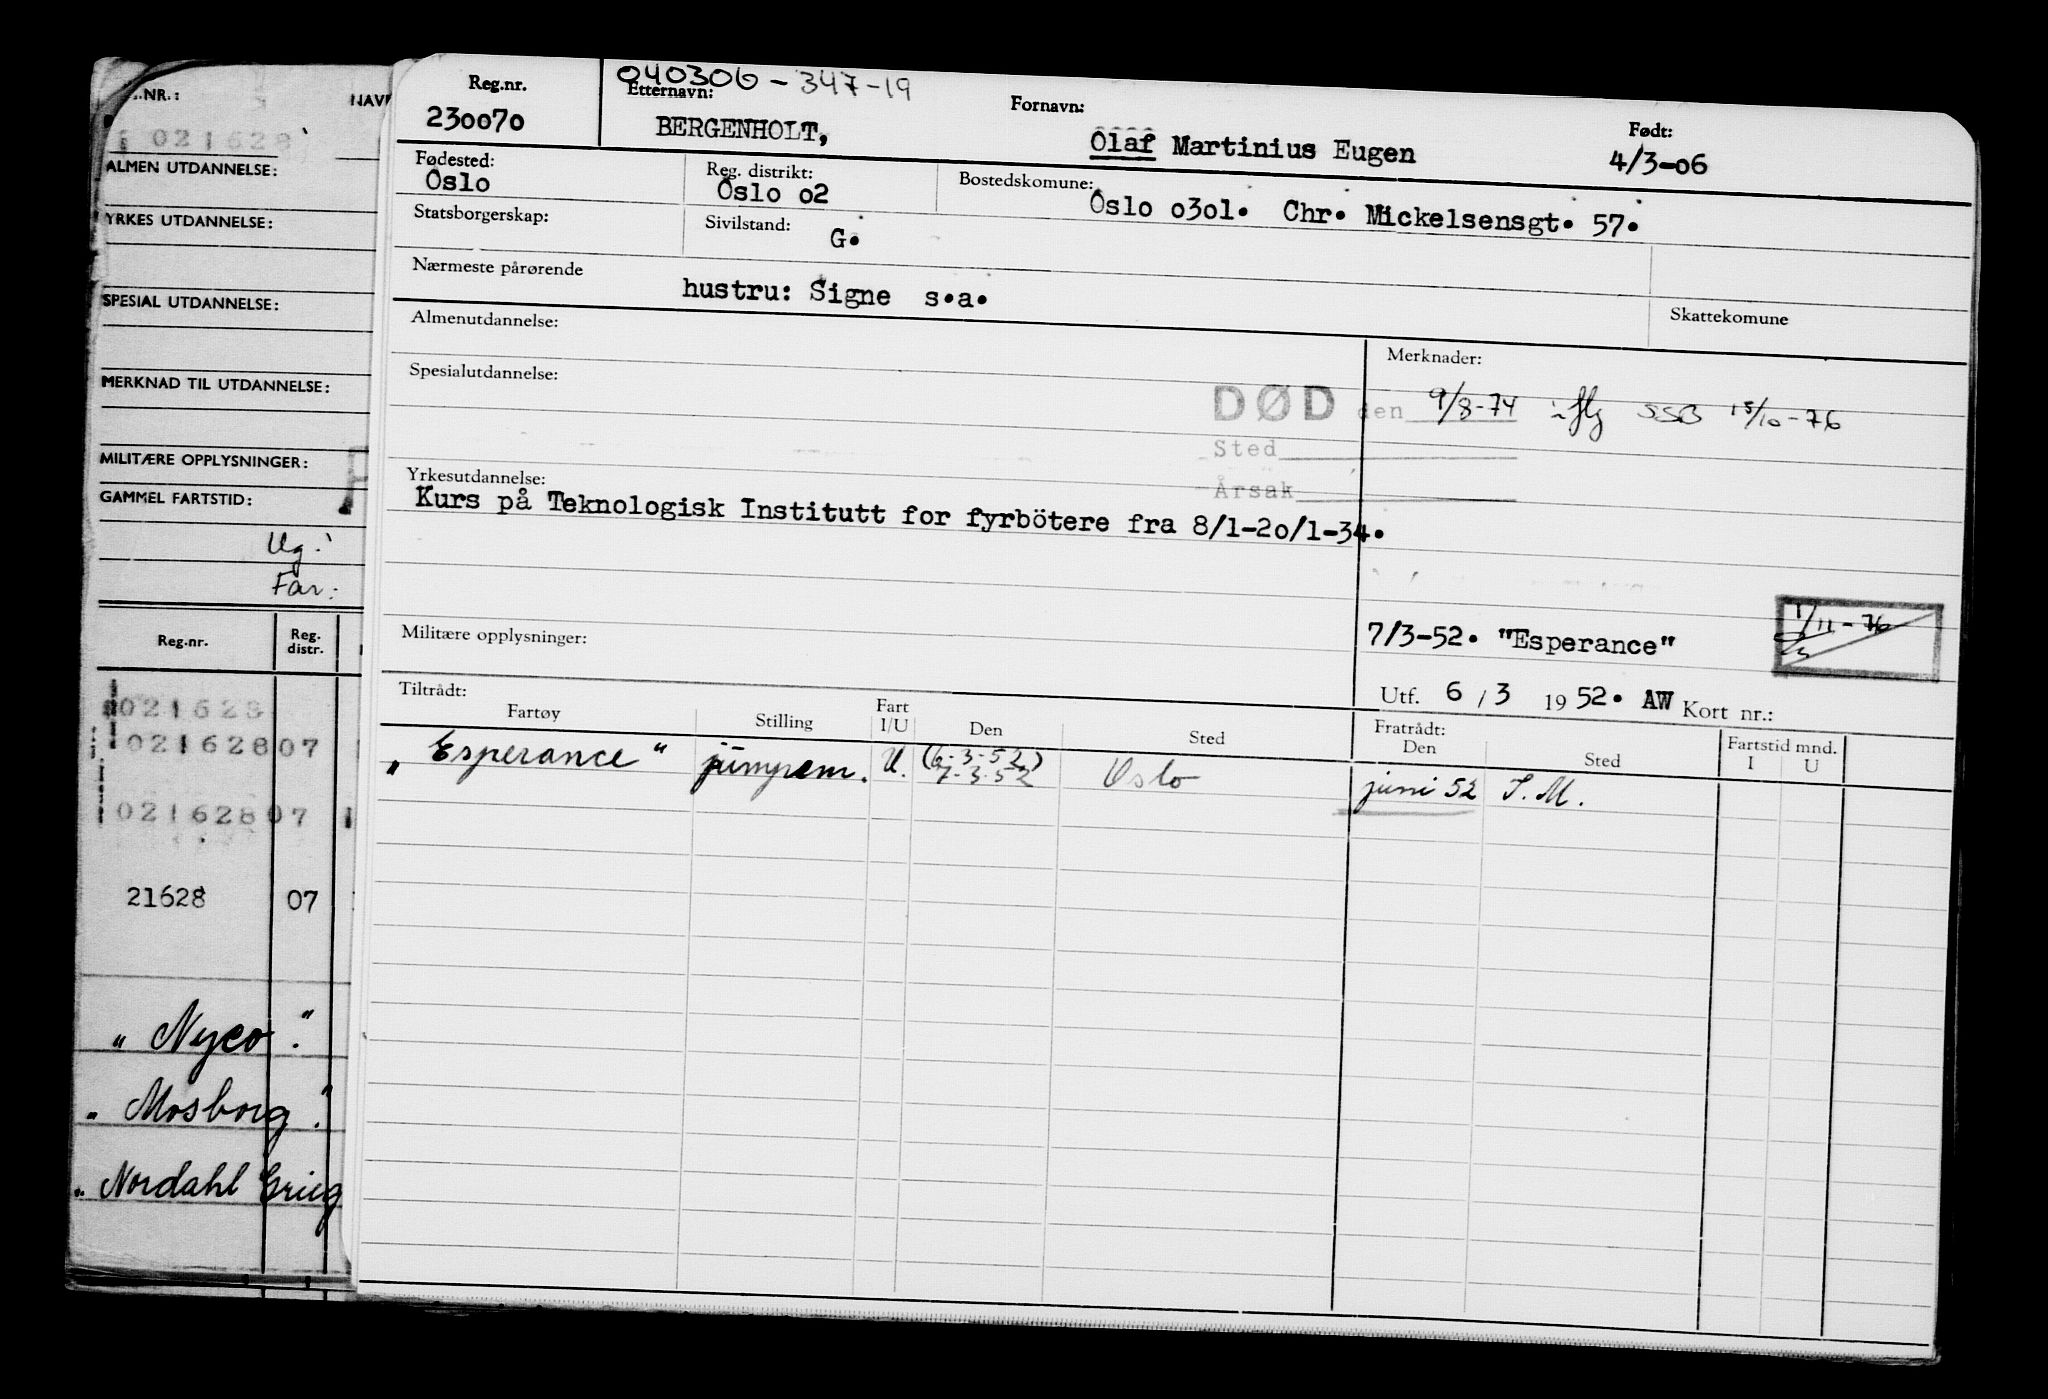 .NR.:
NAV
021628
ALMEN UTDANNELSE:
YRKES UTDANNELSE:
SPESIAL UTDANNELSE:
MERKNAD TIL UTDANNELSE:
MILITÆRE OPPLYSNINGER:
GAMMEL FARTSTID:
Ug.:
Far:
Reg.nr. Reg. distr.
021628
021628 07
021628 07
21628 07
"Nyco."
"Mosborg."
"Nordahl Grieg
040306-347-19
Reg.nr. Etternavn: Fornavn: Født:
230070 BERGENHOLT, Olaf Martinius Eugen 4/3-06
Fødested: Reg. distrikt: Bostedskomune:
Oslo Oslo o2 Oslo o3o1. Chr. Mickelsensgt. 57.
Statsborgerskap: Sivilstand: G.
Nærmeste pårørende
hustru: Signe s.a.
Skattekomune
Almenutdannelse:
Merknader:
Spesialutdannelse:
DØD den 9/8-74 SSB 15/10-76
Sted
Årsak
Yrkesutdannelse:
Kurs på Teknologisk Institutt for fyrbötere fra 8/1-2o/1-34.
1/11-76
Militære opplysninger:
7/3-52. "Esperance"
Utf. 6 / 3 19 52. AW Kort nr.:
Tiltrådt: Fratrådt:
Fartøy Stilling Fart I/U Den Sted Den Sted Fartstid mnd. I U
"Esperance" U. (6-3-52) 7-3-52 Oslo juni 52 S.M.